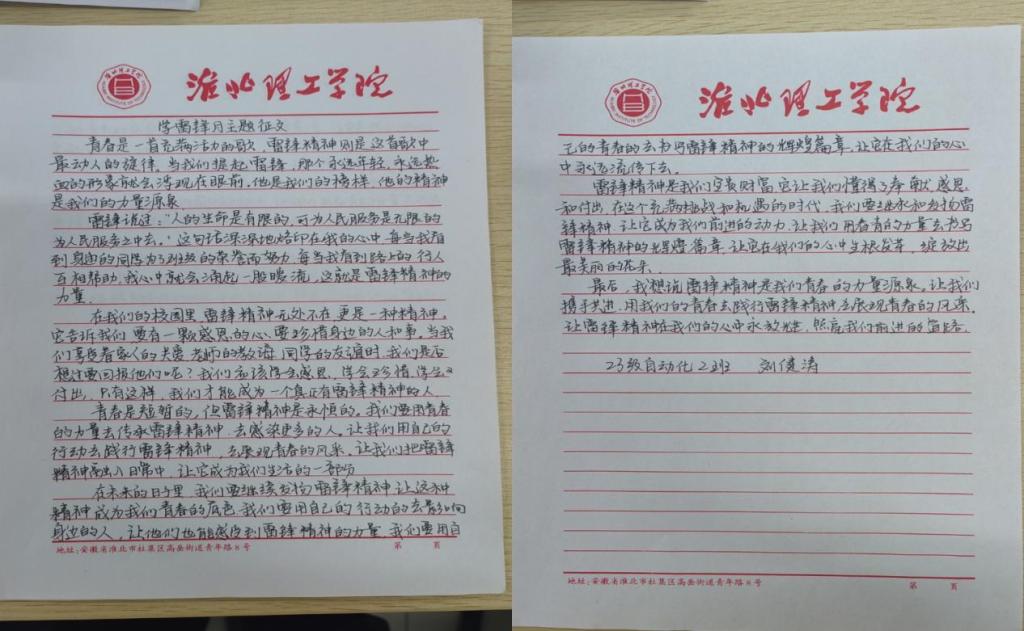 淮北理工学院
学雷锋月主题征文
青春是一首充满活力的歌，雷锋精神则是这首歌中
最动人的旋律。当我们提起雷锋，那个永远年轻，永远热
血的形象就会浮现在眼前。他是我们的榜样，他的精神
是我们的力量源泉
雷锋说过："人的生命是有限的，可为人民服务是无限的
为人民服务之中去。"这句话深深地烙印在我的心中，每当我看
到身边的同学为了班级的荣誉而努力，每当我看到路上的行人
互相帮助，我心中就会涌起一股暖流，这就是雷锋精神的
力量.
在我们的校园里，雷锋精神无处不在，更是一种精神，
它告诉我们，要有一颗感恩的心，要珍惜身边的人和事，当我
们享受着家人的关爱，老师的教诲，同学的友谊时，我们是否
想过要回报他们呢？我们应该学会感恩，学会珍惜，学会
付出，只有这样，我们才能成为一个真正有雷锋精神的人.
青春是短暂的，但雷锋精神是永恒的。我们要用青春
的力量去传承雷锋精神，去感染更多的人。让我们用自己的
行动去践行雷锋精神，去展现青春的风采，让我们把雷锋
精神融入日常中，让它成为我们生活的一部分
在未来的日子里，我们要继续发扬雷锋精神，让这种
精神成为我们青春的底色，我们要用自己的行动的去影响
身边的人，让他们也能感受到雷锋精神的力量，我们要用自
地址：安徽省淮北市杜集区高岳街道青年路8号
第 页
淮北理工学院
己的青春的去书写雷锋精神的辉煌篇章，让它在我们的心
中永远流传下去.
雷锋精神是我们宝贵财富，它让我们懂得了奉献，感恩
和付出，在这个充满挑战和机遇的时代，我们要继承和发扬雷
锋精神，让它成为我们前进的动力，让我们用春青的力量去书写
雷锋精神的辉煌篇章，让它在我们的心中生根发芽，绽放出
最美丽的花朵.
最后，我想说，雷锋精神是我们青春的力量源泉，让我们
携手共进，用我们的青春去践行雷锋精神，去展现青春的风采，
让雷锋精神在我们的心中永放光芒，照亮我们前进的道路.
23级自动化2班 刘健涛
地址：安徽省淮北市杜集区高岳街道青年路8号
第 页